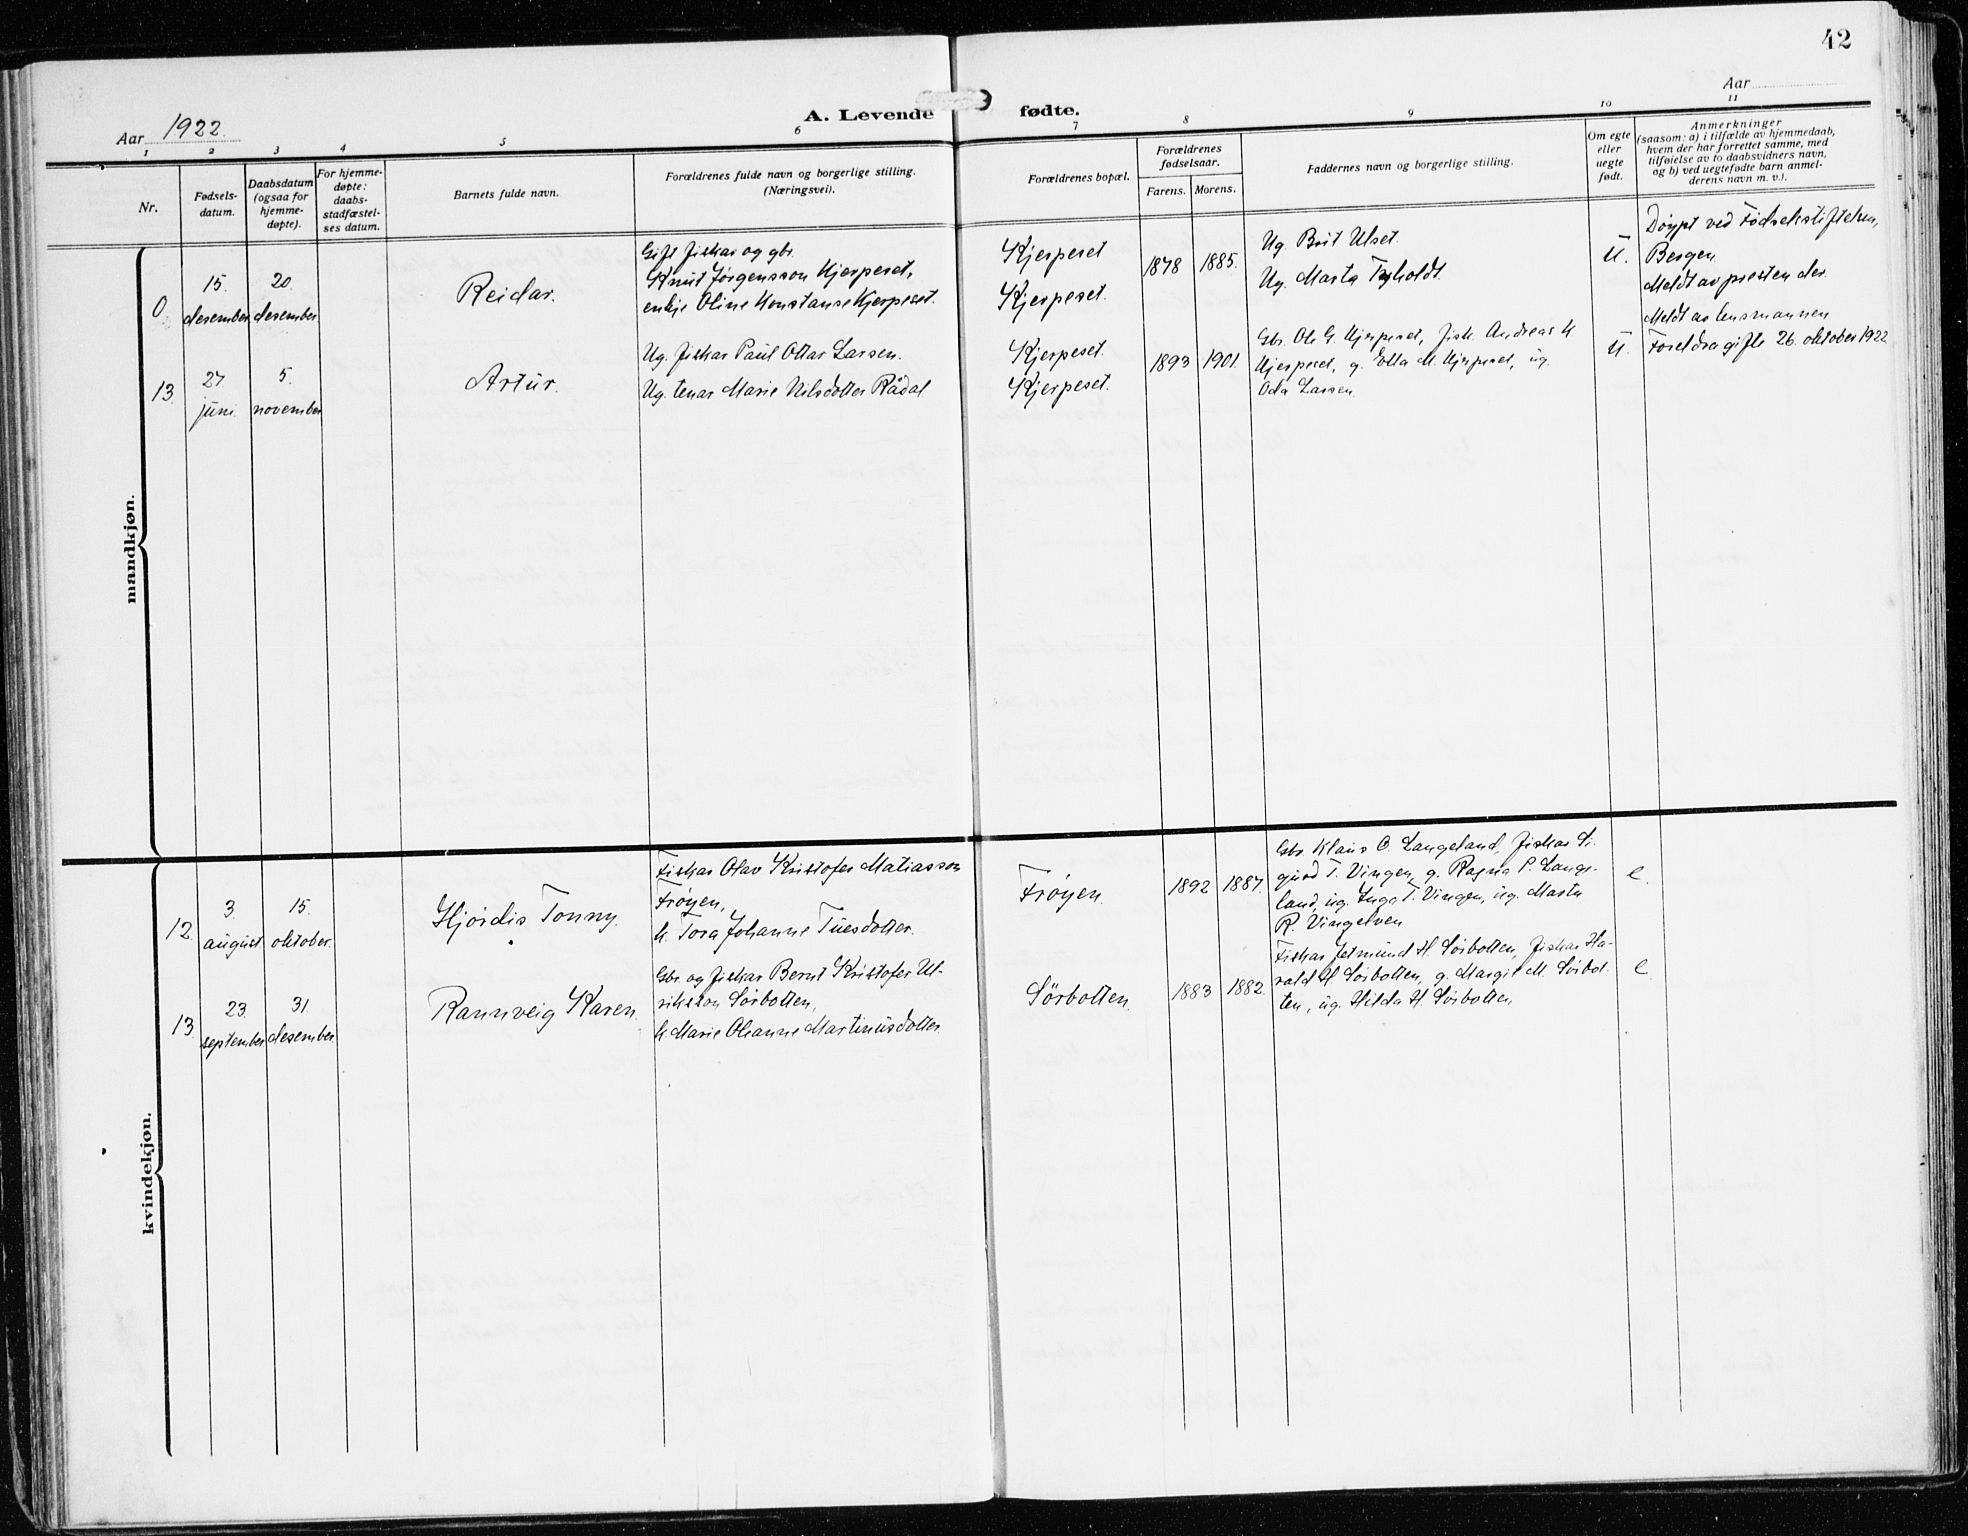 42
Aar 1922.
A. Levende fødte.
Aar
1 2 3 4 5 6 7 8 9 10 11
Nr.
Fødsels-
datum.
Daabsdatum
(ogsaa for
hjemme-
døpte).
For hjemme-
døpte:
daabs-
stadfæstel-
ses datum.
Barnets fulde navn.
Forældrenes fulde navn og borgerlige stilling.
(Næringsvei).
Forældrenes bopæl.
Forældrenes
fødselsaar.
Farens. Morens.
Faddernes navn og borgerlige stilling.
Om egte
eller
uegte
født.
Anmerkninger
(saasom: a) i tilfælde av hjemmedaab,
hvem der har forrettet samme, med
tilføielse av to daabsvidners navn,
og b) ved uegtefødte barn anmel-
derens navn m. v.).
mandkjøn.
0
15.
desember
20.
desember
Reidar.
Gift fiskar og gbr.
Knut Jørgensson Kjerpeset,
enkje Oline Konstanse Kjerpeset.
Kjerpeset
Kjerpeset.
1878 1885.
Ug. Brit Ulset.
Ug. Marta Tyholdt.
U.
Døypt ved Fødselsstiftelsen,
Bergen.
Meldt av presten der.
13.
27.
juni.
5.
november
Artur.
Ug. fiskar Paul Ottar Larsen.
Ug. tenar Marie Nilsdotter Rådal
Kjerpeset.
Kjerpeset.
1893 1901.
Gbr. Ole G. Kjerpeset, fisk. Andreas K
Kjerpeset, g. Etta M. Kjerpeset, ug.
Oda Larsen.
U.
Meldt av lensmannen
Foreldra gifte 26. oktober 1922
kvindekjøn.
12.
3.
august.
15.
oktober.
Hjördis Tonny.
Fiskar Olav Kristofer Matiasson
Fröyen,
k. Tora Johanne Tuesdotter.
Fröyen.
1892 1887.
Gbr. Klaus O. Langeland, fiskar Si-
gurd T. Vingen, g. Ragna P. Lange-
land, ug. Inga T. Vingen, ug. Marta
R. Vingelven
e.
13.
23.
september
31.
desember
Rannveig Karen.
Gbr. og fiskar Bernt Kristofer Ul-
riksson Sörbotten,
k. Marie Oleanne Martinusdotter.
Sörbotten.
1883 1882.
Fiskar Jetmund H. Sörbotten, fiskar Ha-
rald H. Sörbotten, g. Margit M. Sörbot-
ten, ug. Hilda H. Sörbotten
e.